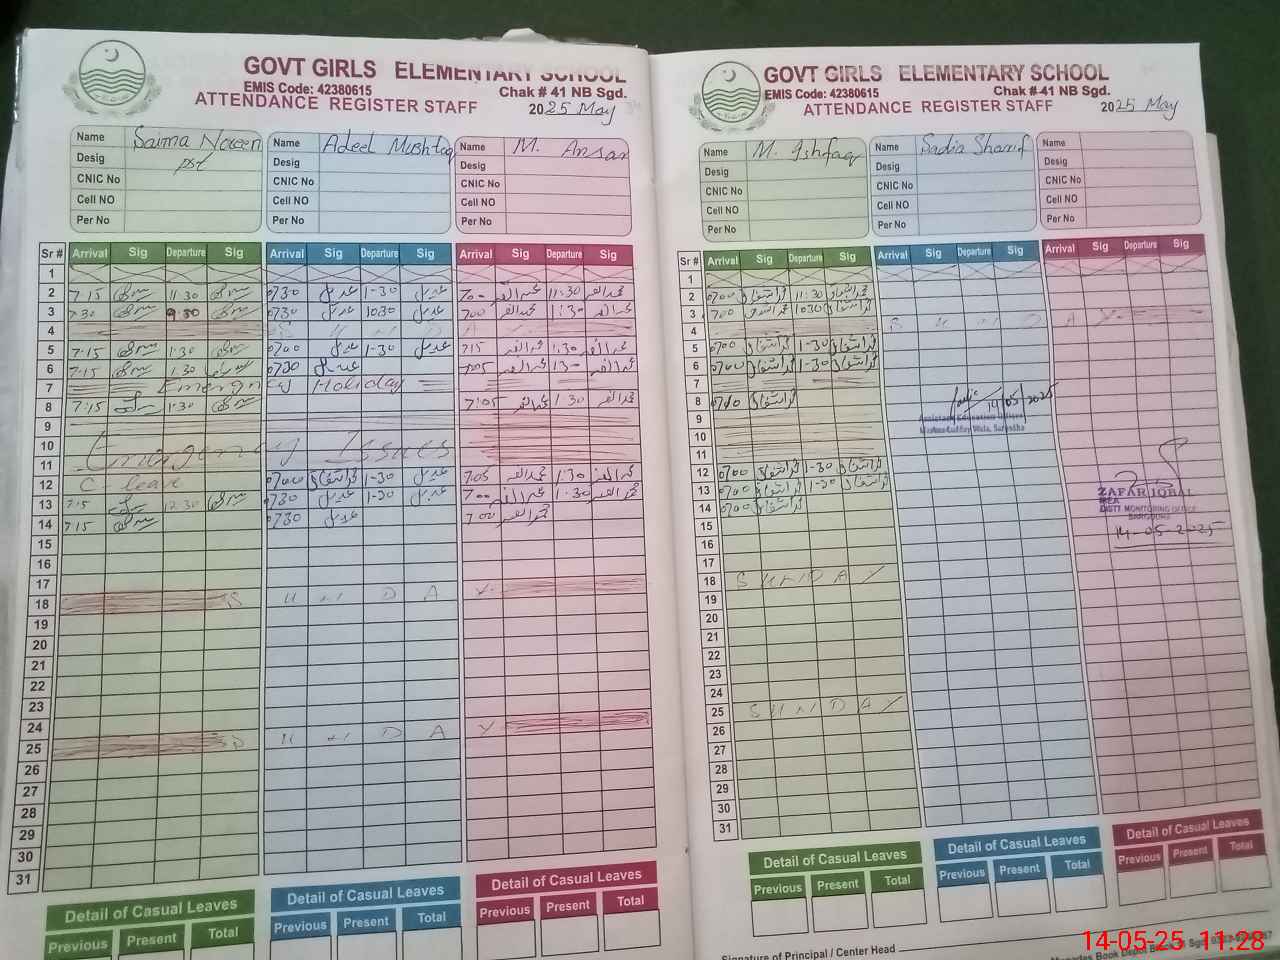 GOVT GIRLS ELEMENTARY SCHOOL
EMIS Code: 42380615 Chak # 41 NB Sgd.
ATTENDANCE REGISTER STAFF 2025 May
Name Saima Noreen Name Adeel Mushtaq Name M. Ansar
Desig pst Desig Desig
CNIC No CNIC No CNIC No
Cell NO Cell NO Cell NO
Per No Per No Per No
Sr # Arrival Sig Departure Sig Arrival Sig Departure Sig Arrival Sig Departure Sig
1
2 7.15 11.30 0730 عدیل 1-30 عدیل 700 11:30
3 7.30 9.30 0730 عدیل 1030 عدیل 700 1:30
4 S U N D A Y
5 7:15 1:30 0700 عدیل 1-30 عدیل 715 1:30
6 7:15 1.30 0730 عدیل 7:05 1:30
7 Emergency Holiday
8 7:15 1:30 7:05 1:30
9
10 Emergency Issues
11
12 C-leave 0700 1-30 عدیل 7:05 1:30
13 7:15 12.30 0730 عدیل 1-30 عدیل 700 1:30
14 7:15 0730 عدیل 7:00
15
16
17
18 S U N D A Y
19
20
21
22
23
24
25 S U N D A Y
26
27
28
29
30
31
Detail of Casual Leaves Detail of Casual Leaves Detail of Casual Leaves
Previous Present Total Previous Present Total Previous Present Total
GOVT GIRLS ELEMENTARY SCHOOL
EMIS Code: 42380615 Chak # 41 NB Sgd.
ATTENDANCE REGISTER STAFF 2025 May
Name M. Ishfaq Name Sadia Sharif Name
Desig Desig Desig
CNIC No CNIC No CNIC No
Cell NO Cell NO Cell NO
Per No Per No Per No
Sr # Arrival Sig Departure Sig Arrival Sig Departure Sig Arrival Sig Departure Sig
1
2 0700 11:30
3 700 1030
4 S U N D A Y
5 0700 1-30
6 0700 1-30
7
8 0740
14/05/2025
9 Assistant Education Officer
10
11
12 0700 1-30
13 0700 1-30
ZAFAR IQBAL
MEA
DISTT MONITORING OFFICE
SARGODHA
14 0700
14-05-2025
15
16
17
18 S U N D A Y
19
20
21
22
23
24
25 S U N D A Y
26
27
28
29
30
31
Detail of Casual Leaves Detail of Casual Leaves Detail of Casual Leaves
Previous Present Total Previous Present Total Previous Present Total
Signature of Principal / Center Head
14-05-25 11:28